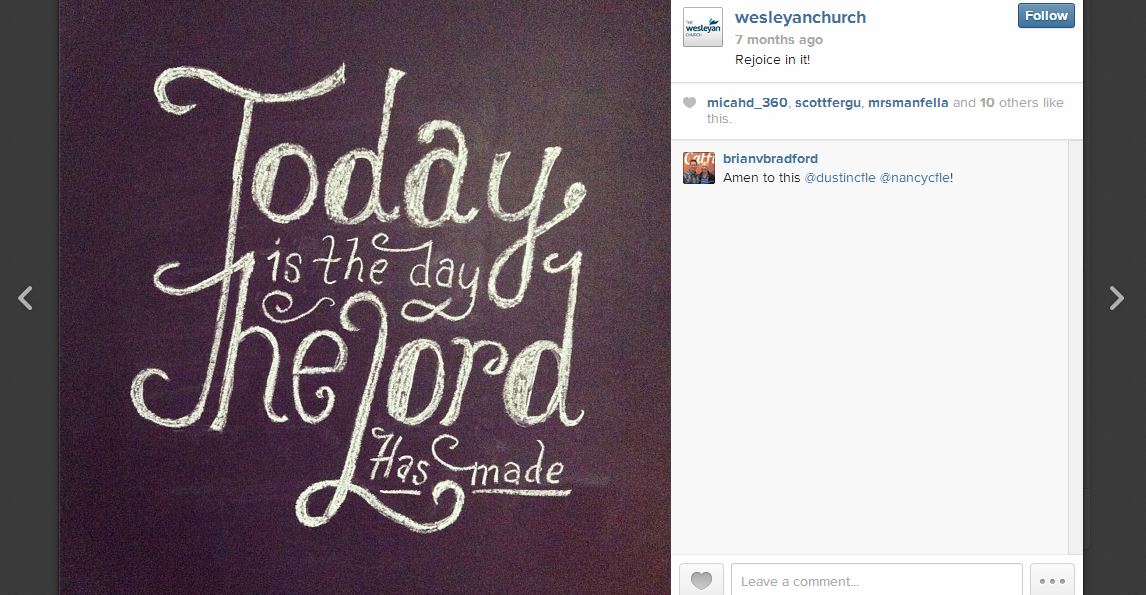 Today
is the day
The Lord
Has made
THE
wesleyan
CHURCH
wesleyanchurch
Follow
7 months ago
Rejoice in it!
micahd_360, scottfergu, mrsmanfella and 10 others like
this.
Catfi
brianvbradford
Amen to this @dustincfle @nancycfle!
Leave a comment...